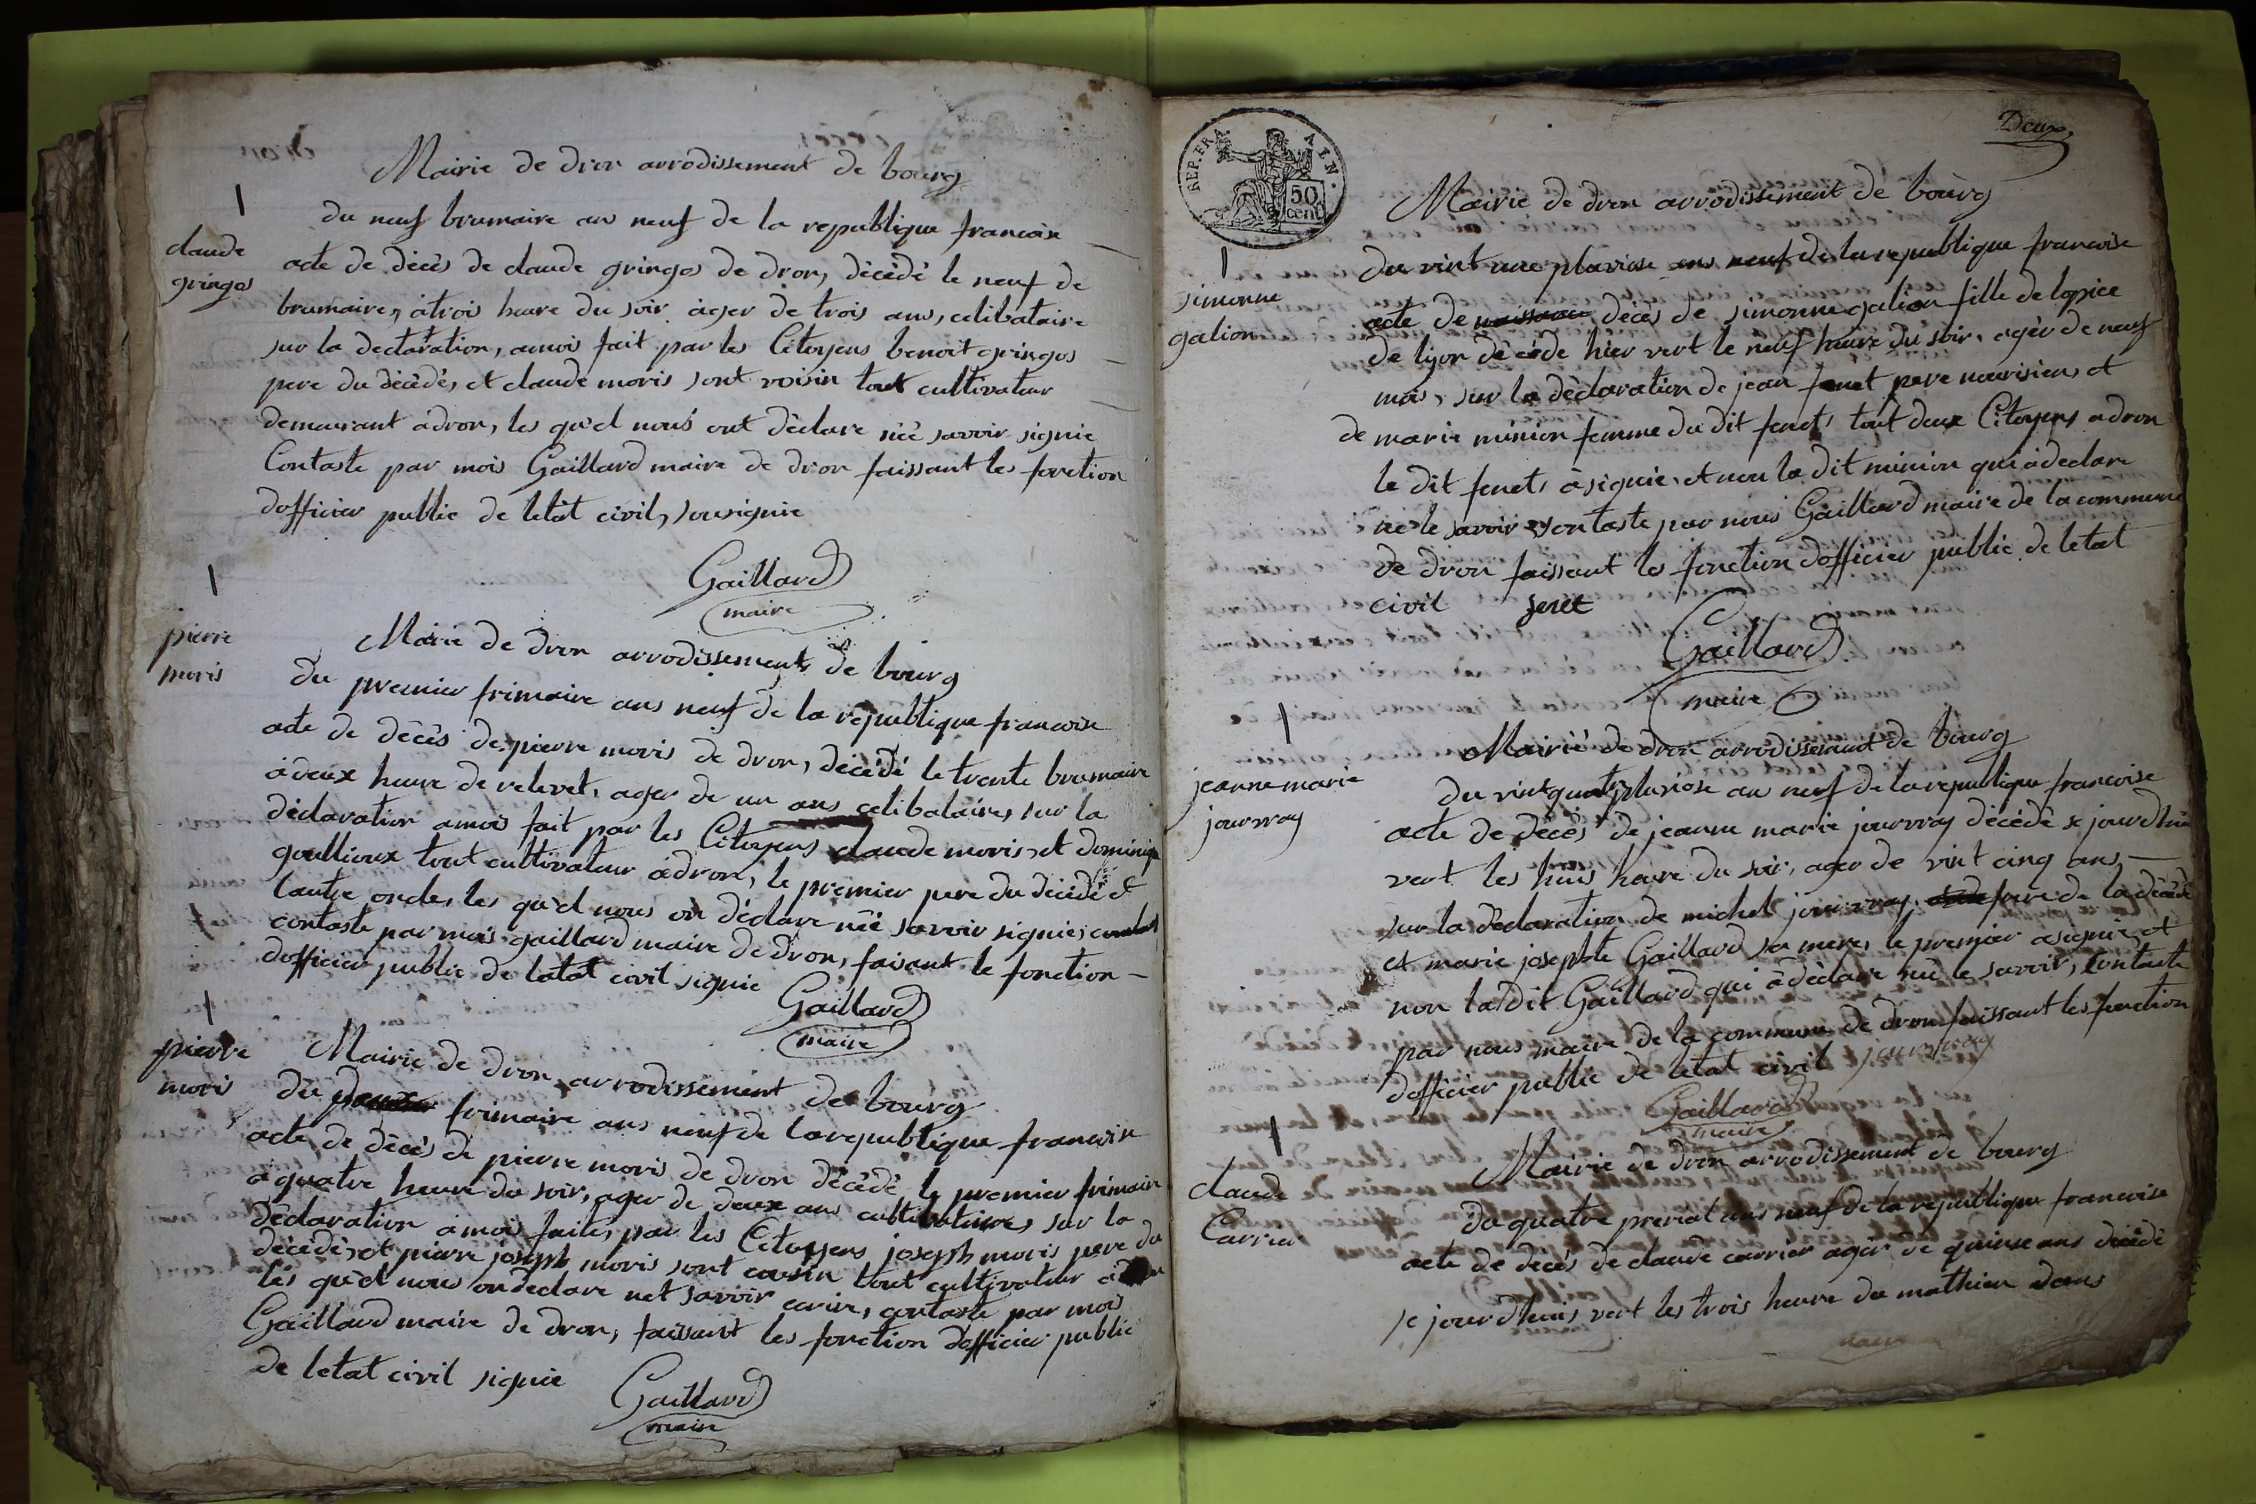 Mairie de dron arrodissement de bourg
claude
gringos
du neuf brumaire an neuf de la republique francoise
acte de décès de claude gringos de dron, décédé le neuf de
brumaire, à trois heure du soir ager de trois ans, celibataire
sur la declaration, a moi fait par les Citoyens benoit gringos
pere du décédé, et claude moris sont voisin tout cultivateur
demeurant à dron, les qu'el nous ont déclare néé savoir signie
Contaste par mois Gaillard maire de dron faissant les fonction
dofficier public de letat civil, sousignie
Gaillard
maire
pierre
moris
Mairie de dron arrodissement de bourg
du premier frimaire ans neuf de la republique francoise
acte de décès de pierre moris de dron, décédé le trente brumaire
à deux heure de relevet, ager de un ans celibataire, sur la
déclaration a mois fait par les Citoyens claude moris, et dominique
goullioux tout cultivateur à dron, le premier pere du décédé et
lautre oncle, les qu'el nous on déclare néé savoir signie,
contaste par mois gaillard maire de dron, faisant le fonction
dofficier public de letat civil signie
Gaillard
maire
pierre
moris
Mairie de dron arrodissement de bourg
du frimaire ans neuf de la republique francoise
acte de décès de pierre moris de dron décédé le premier frimaire
à quatre heure du soir, ager de deux ans sur la
déclaration à mois faite, par les Citoyens joseph moris pere du
décédé, et pierre joseph moris sont cousin tout cultivateur à
les qu'el nous on declare net savoir ecrire, contaste par mois
Gaillard maire de dron, faissant les fonction dofficier public
de letat civil signie
Gaillard
maire
REP. FRA. AIN.
50
cent
Deux
Mairie de dron arrodissement de bourg
simonne
galion
du vint une pluviose ans neuf de la republique francoise
acte de naissance décès de simonne galion fille de lopice
de lyon décéde hier vert le neuf heure du soir, agér de neuf
mois, sur la déclaration de jean fenet pere nourisien, et
de marie minion femme du dit fenet, tout deux Citoyens a dron
le dit fenet, à signie, et non la dit minion qui à declare
ne le savoir contaste par nous Gaillard maire de la commune
de dron faissant les fonction dofficier public de letat
civil fenet
Gaillard
maire
jeanne marie
jourvray
Mairie de dron arrodissement de bourg
du vint quatre pluviose an neuf de la republique francoise
acte de décès de jeanne marie jourvray décédé se jourdhui
vert les huis heure du soir, ager de vint cinq ans,
sur la déclaration de michel jourvray frere de la décédé
et marie josephte Gaillard sa mere, le premier a signie, et
non la dit Gaillard qui à déclare néé le savoir, Contaste
par nous maire de la commune de dron faissant les fonction
dofficier public de letat civil jourvray
Gaillard
maire
claude
Carrier
Mairie de dron arrodissement de bourg
du quatre prerial ans neuf de la republique francoise
acte de decès de claude carrier agér de quinse ans décédé
se jourdhuis vert les trois heure du mathien dans